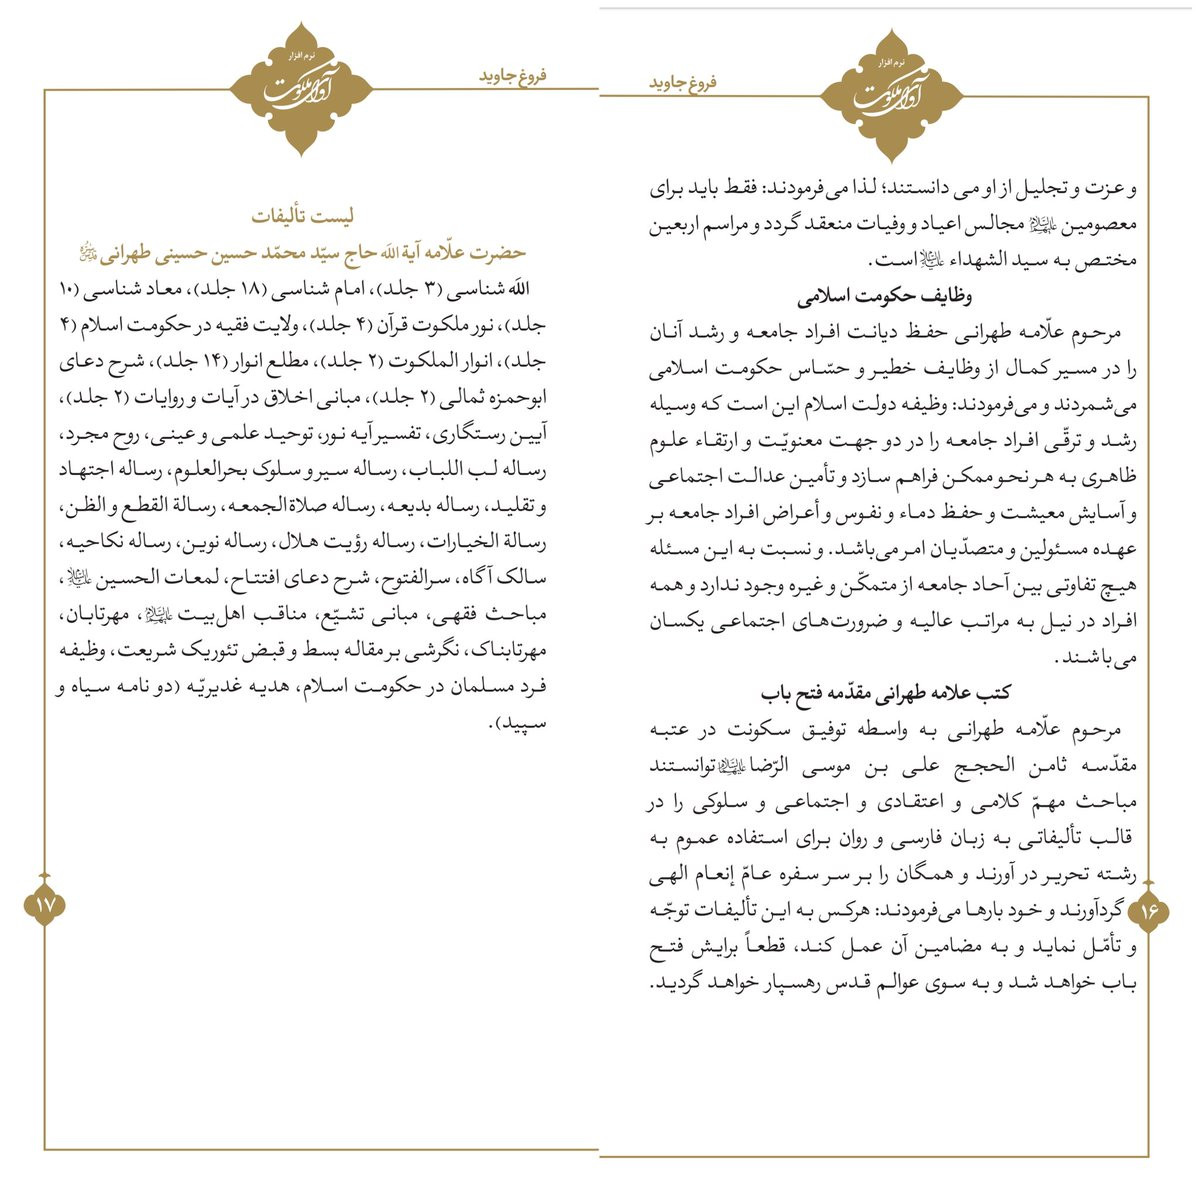 فروغ جاوید
نرم افزار
آوای ملکوت
و عزت و تجلیل از او می دانستند؛ لذا می‌فرمودند: فقط باید برای
معصومین علیهم‌السلام مجالس اعیاد و وفیات منعقد گردد و مراسم اربعین
مختص به سید الشهداء علیه‌السلام است.
وظایف حکومت اسلامی
مرحوم علّامه طهرانی حفظ دیانت افراد جامعه و رشد آنان
را در مسیر کمال از وظایف خطیر و حسّاس حکومت اسلامی
می‌شمردند و می‌فرمودند: وظیفه دولت اسلام این است که وسیله
رشد و ترقّی افراد جامعه را در دو جهت معنویّت و ارتقاء علوم
ظاهری به هر نحو ممکن فراهم سازد و تأمین عدالت اجتماعی
و آسایش معیشت و حفظ دماء و نفوس و أعراض افراد جامعه بر
عهده مسئولین و متصدّیان امر می‌باشد. و نسبت به این مسئله
هیچ تفاوتی بین آحاد جامعه از متمکّن و غیره وجود ندارد و همه
افراد در نیل به مراتب عالیه و ضرورت‌های اجتماعی یکسان
می‌باشند.
کتب علامه طهرانی مقدّمه فتح باب
مرحوم علّامه طهرانی به واسطه توفیق سکونت در عتبه
مقدّسه ثامن الحجج علی بن موسی الرّضا علیهماالسلام توانستند
مباحث مهمّ کلامی و اعتقادی و اجتماعی و سلوکی را در
قالب تألیفاتی به زبان فارسی و روان برای استفاده عموم به
رشته تحریر در آورند و همگان را بر سر سفره عامّ إنعام الهی
گردآورند و خود بارها می‌فرمودند: هرکس به این تألیفات توجّه
و تأمّل نماید و به مضامین آن عمل کند، قطعاً برایش فتح
باب خواهد شد و به سوی عوالم قدس رهسپار خواهد گردید.
۱۶
فروغ جاوید
نرم افزار
آوای ملکوت
لیست تألیفات
حضرت علّامه آیة الله حاج سیّد محمّد حسین حسینی طهرانی قدّس‌سرّه
الله شناسی (۳ جلد)، امام شناسی (۱۸ جلد)، معاد شناسی (۱۰
جلد)، نور ملکوت قرآن (۴ جلد)، ولایت فقیه در حکومت اسلام (۴
جلد)، انوار الملکوت (۲ جلد)، مطلع انوار (۱۴ جلد)، شرح دعای
ابوحمزه ثمالی (۲ جلد)، مبانی اخلاق در آیات و روایات (۲ جلد)،
آیین رستگاری، تفسیر آیه نور، توحید علمی و عینی، روح مجرد،
رساله لب اللباب، رساله سیر و سلوک بحرالعلوم، رساله اجتهاد
و تقلید، رساله بدیعه، رساله صلاة‌الجمعه، رسالة القطع و الظن،
رسالة الخیارات، رساله رؤیت هلال، رساله نوین، رساله نکاحیه،
سالک آگاه، سرالفتوح، شرح دعای افتتاح، لمعات الحسین علیه‌السلام،
مباحث فقهی، مبانی تشیّع، مناقب اهل‌بیت علیهم‌السلام، مهرتابان،
مهرتابناک، نگرشی بر مقاله بسط و قبض تئوریک شریعت، وظیفه
فرد مسلمان در حکومت اسلام، هدیه غدیریّه (دو نامه سیاه و
سپید).
۱۷